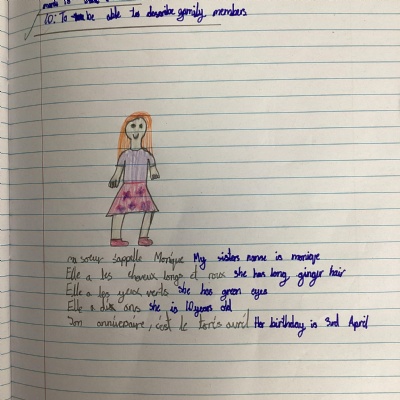 LO: To be able to describe family members
ma soeur s'appelle Monique My sisters name is monique
Elle a les cheveux longs et roux she has long, ginger hair
Elle a les yeux verts She has green eyes
Elle a dix ans she is 10 years old
Son annivepaire, c'est le trois avril Her birthday is 3rd April